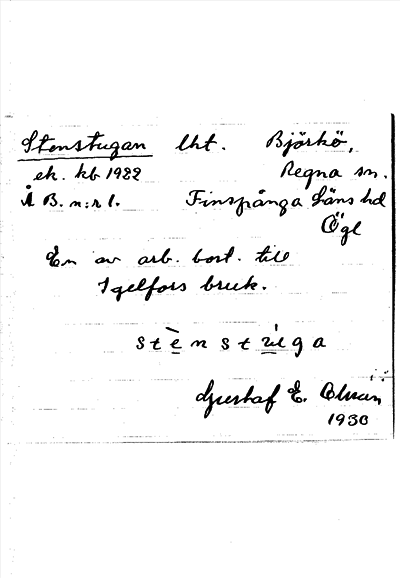 Stenstugan lht. Björkö,
ek. kb 1922 Regna sn.
Å B. n:r 1. Finspånga läns hd
Ögl
En av arb. bost. till
Igelfors bruk.
stènstúga
Gustaf E.
1930